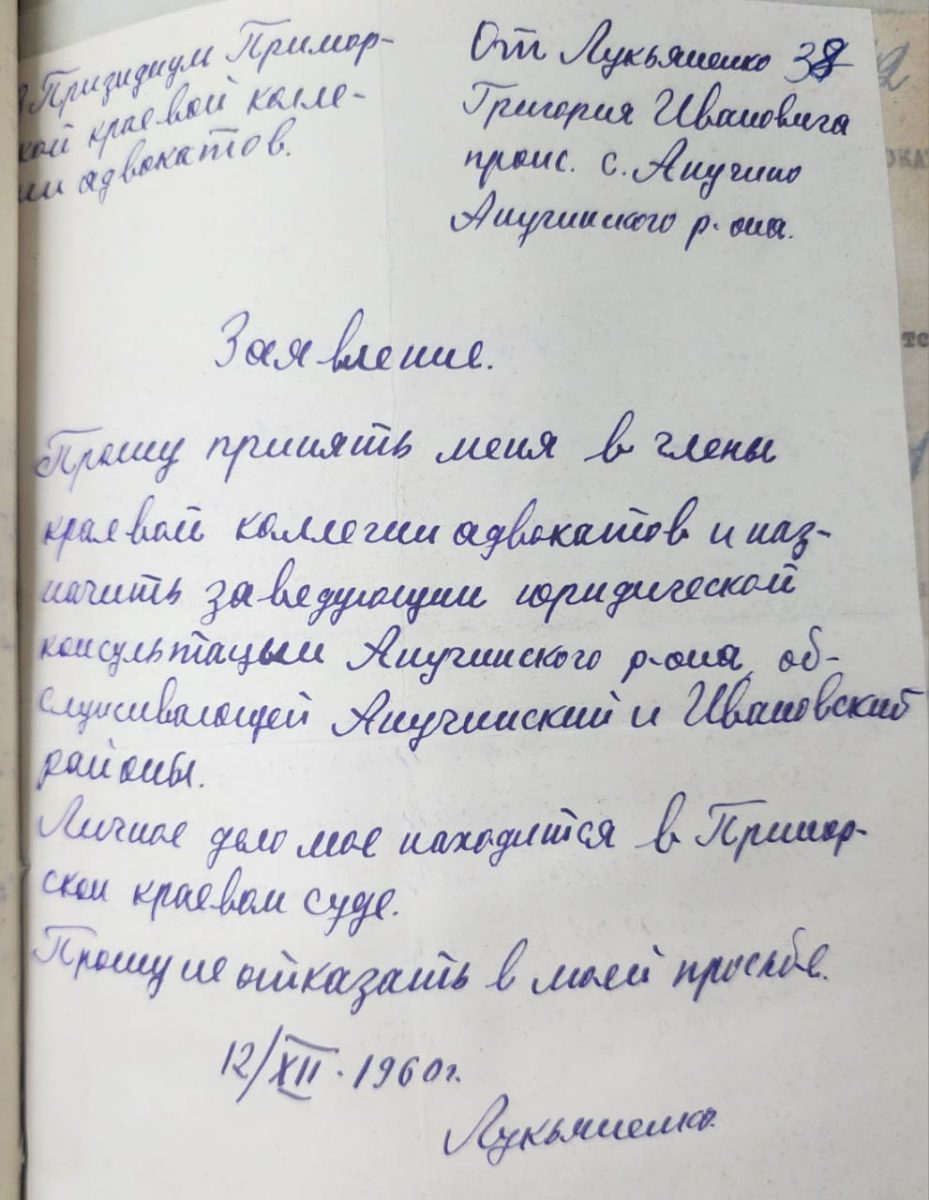 Призидиум Примор-
кой краевой колле-
ии адвокатов.
От Лукьяненко 38
Григория Ивановича
прож. с. Анучино
Анучинского р-она.
Заявление.
Прошу принять меня в члены
краевой коллегии адвокатов и наз-
начить заведующим юридической
консультацыи Анучинского р-она, об-
служивающей Анучинский и Ивановский
районы.
Личное дело мое находится в Примор-
ском краевом суде.
Прошу не отказать в моей просьбе.
12/XII. 1960г.
Лукьяненко.